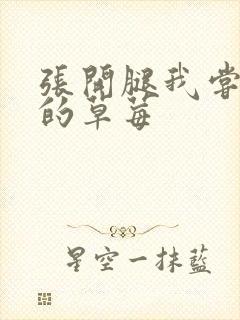 張開腿我嘗
的草莓
星空一抹藍